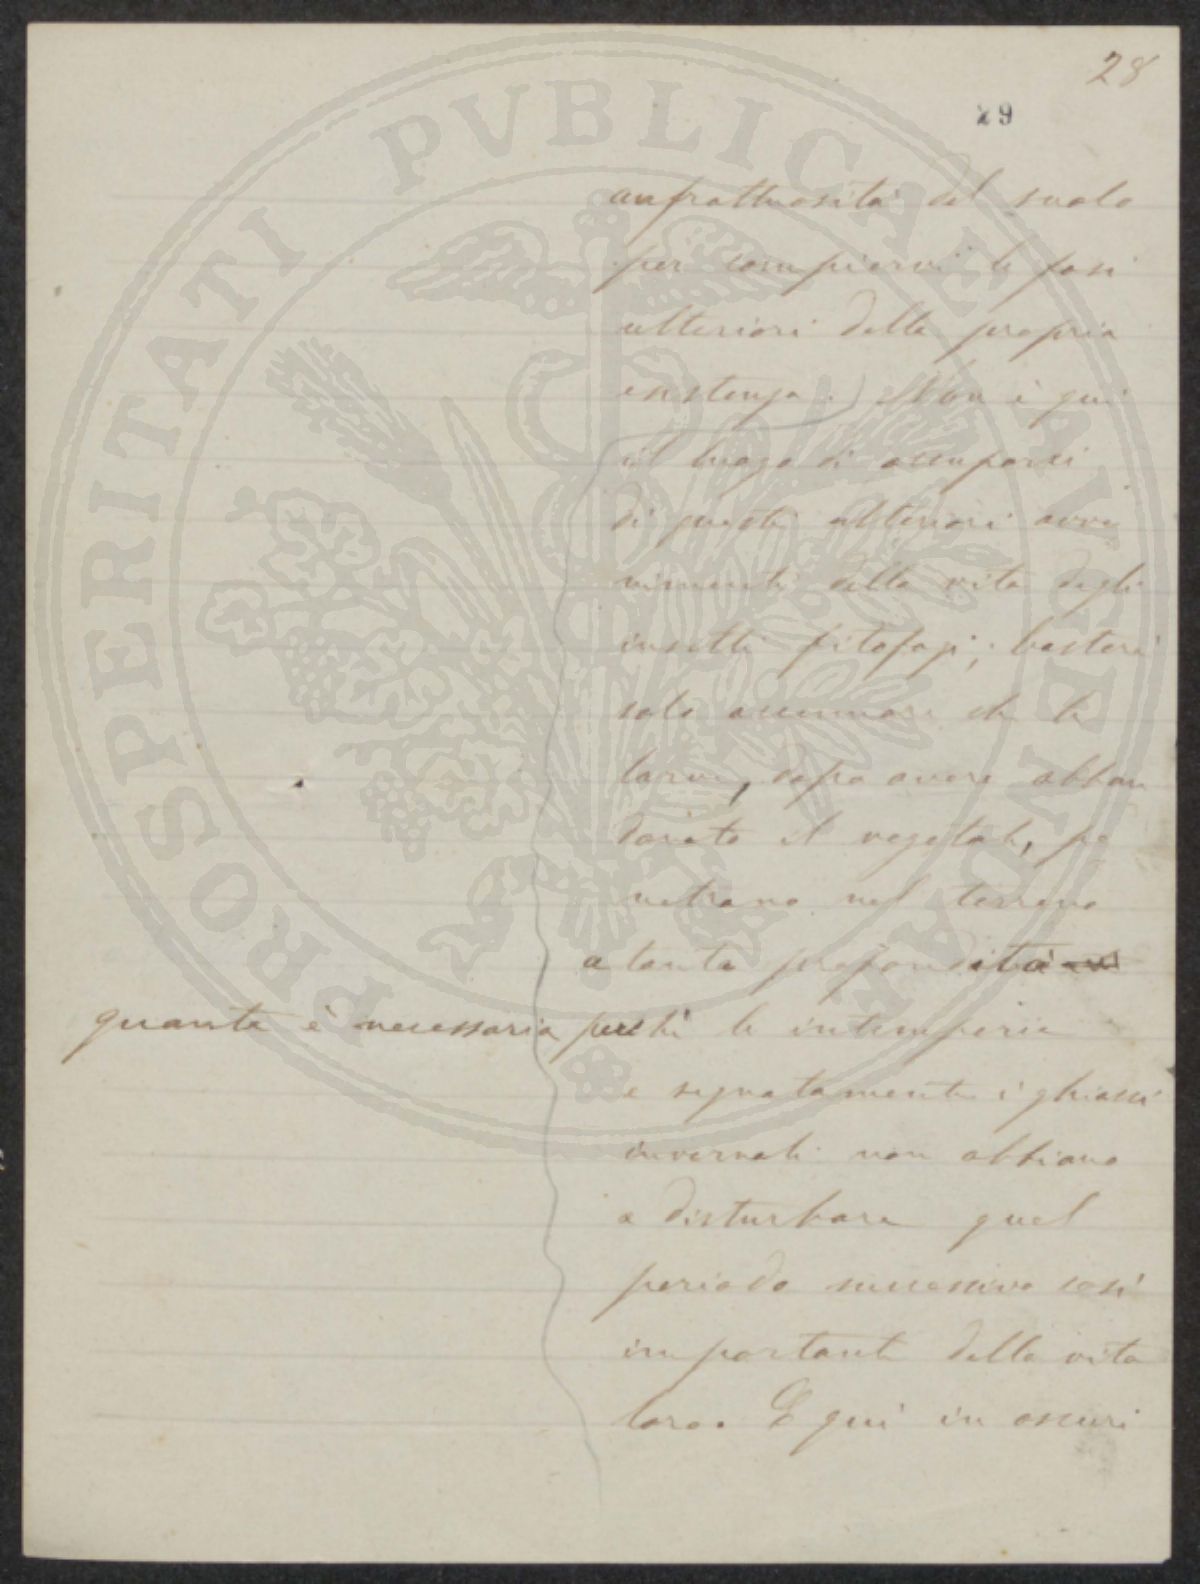 28
29
anfrattuosità del suolo
per compiervi le fasi
ulteriori della propria
esistenza. Non è qui
il luogo di occuparsi
di questi ulteriori avve
nimenti della vita degli
insetti fitofagi; basterà
solo accennare che le
larve, dopo avere abban
donato il vegetale, pe
netrano nel terreno
a tanta profondità
quanta è necessaria perchè le intemperie
e segnatamente i ghiacci
invernali non abbiano
a disturbare quel
periodo successivo così
importante della vita
loro. E qui in oscuri
PROSPERITATI PVBLICAE AVGENDAE